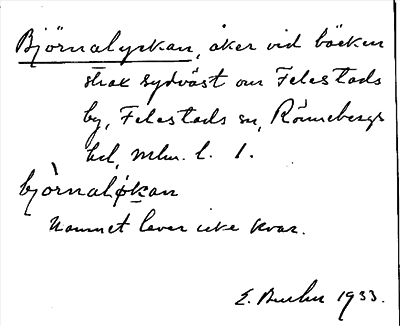 Björnalyckan, åker vid bäcken
strax sydväst om Felestads
by, Felestads sn, Rönnebergs
hd, Mlm. l. 1.
bjö̀rnaløkan
Namnet lever icke kvar.
E. 1933.